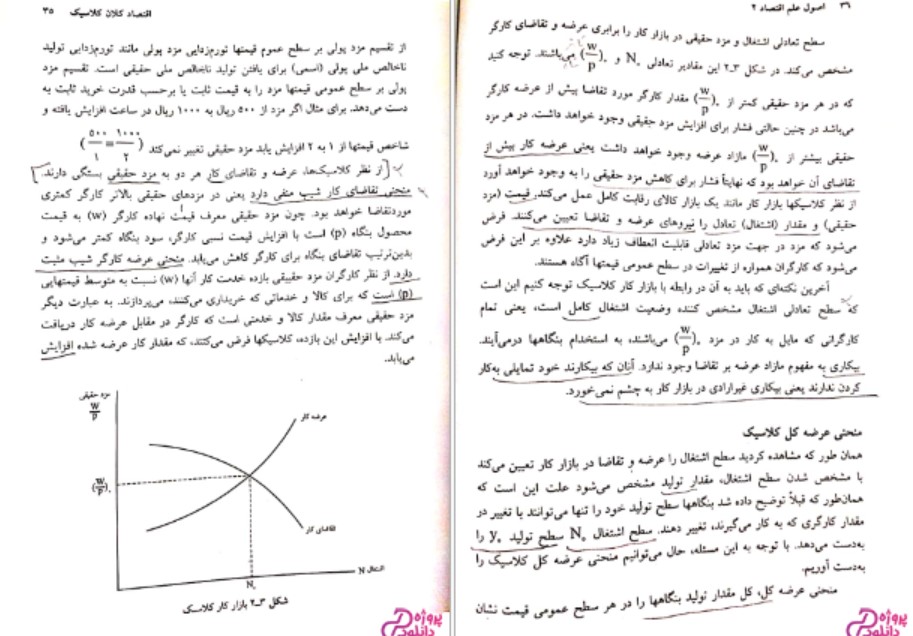 اقتصاد کلان کلاسیک ۳۵
از تقسیم مزد پولی بر سطح عموم قیمتها تورم‌زدایی مزد پولی مانند تورم‌زدایی تولید
ناخالص ملی پولی (اسمی) برای یافتن تولید ناخالص ملی حقیقی است. تقسیم مزد
پولی بر سطح عمومی قیمتها مزد را به قیمت ثابت یا برحسب قدرت خرید ثابت به
دست می‌دهد. برای مثال اگر مزد از ۵۰۰ ریال به ۱۰۰۰ ریال در ساعت افزایش یافته و
شاخص قیمتها از ۱ به ۲ افزایش یابد مزد حقیقی تغییر نمی‌کند (۵۰۰/۱ = ۱۰۰۰/۲)
از نظر کلاسیک‌ها، عرضه و تقاضای کار هر دو به مزد حقیقی بستگی دارند.
منحنی تقاضای کار شیب منفی دارد یعنی در مزدهای حقیقی بالاتر کارگر کمتری
موردتقاضا خواهد بود. چون مزد حقیقی معرف قیمت نهاده کارگر (w) به قیمت
محصول بنگاه (p) است با افزایش قیمت نسبی کارگر، سود بنگاه کمتر می‌شود و
بدین‌ترتیب تقاضای بنگاه برای کارگر کاهش می‌یابد. منحنی عرضه کارگر شیب مثبت
دارد. از نظر کارگران مزد حقیقی بازده خدمت کار آنها (w) نسبت به متوسط قیمتهایی
(p) است که برای کالا و خدماتی که خریداری می‌کنند، می‌پردازند. به عبارت دیگر
مزد حقیقی معرف مقدار کالا و خدمتی است که کارگر در مقابل عرضه کار دریافت
می‌کند. با افزایش این بازده، کلاسیکها فرض می‌کنند، که مقدار کار عرضه شده افزایش
می‌یابد.
مزد حقیقی
W/P
عرضه کار
(W/P)₀
تقاضای کار
N₀
اشتغال N
شکل ۳-۲ بازار کار کلاسیک
پروژه دانلود
۳۶ اصول علم اقتصاد ۲
سطح تعادلی اشتغال و مزد حقیقی در بازار کار را برابری عرضه و تقاضای کارگر
مشخص می‌کند. در شکل ۳-۲ این مقادیر تعادلی N₀ و (w/p)₀ می‌باشند. توجه کنید
که در هر مزد حقیقی کمتر از (w/p)₀ مقدار کارگر مورد تقاضا بیش از عرضه کارگر
می‌باشد در چنین حالتی فشار برای افزایش مزد حقیقی وجود خواهد داشت. در هر مزد
حقیقی بیشتر از (w/p)₀ مازاد عرضه وجود خواهد داشت یعنی عرضه کار بیش از
تقاضای آن خواهد بود که نهایتاً فشار برای کاهش مزد حقیقی را به وجود خواهد آورد
از نظر کلاسیکها بازار کار مانند یک بازار کالای رقابت کامل عمل می‌کند. قیمت (مزد
حقیقی) و مقدار (اشتغال) تعادل را نیروهای عرضه و تقاضا تعیین می‌کنند. فرض
می‌شود که مزد در جهت مزد تعادلی قابلیت انعطاف زیاد دارد علاوه بر این فرض
می‌شود که کارگران همواره از تغییرات در سطح عمومی قیمتها آگاه هستند.
آخرین نکته‌ای که باید به آن در رابطه با بازار کار کلاسیک توجه کنیم این است
که سطح تعادلی اشتغال مشخص کننده وضعیت اشتغال کامل است، یعنی تمام
کارگرانی که مایل به کار در مزد (w/p)₀ می‌باشند، به استخدام بنگاهها درمی‌آیند.
بیکاری به مفهوم مازاد عرضه بر تقاضا وجود ندارد. آنان که بیکارند خود تمایلی به‌کار
کردن ندارند یعنی بیکاری غیرارادی در بازار کار به چشم نمی‌خورد.
منحنی عرضه کل کلاسیک
همان طور که مشاهده کردید سطح اشتغال را عرضه و تقاضا در بازار کار تعیین می‌کند
با مشخص شدن سطح اشتغال، مقدار تولید مشخص می‌شود علت این است که
همان‌طور که قبلاً توضیح داده شد بنگاهها سطح تولید خود را تنها می‌توانند با تغییر در
مقدار کارگری که به کار می‌گیرند، تغییر دهند. سطح اشتغال N₀ سطح تولید y₀ را
به‌دست می‌دهد. با توجه به این مسئله، حال می‌توانیم منحنی عرضه کل کلاسیک را
به‌دست آوریم.
منحنی عرضه کل، کل مقدار تولید بنگاهها را در هر سطح عمومی قیمت نشان
پروژه دانلود